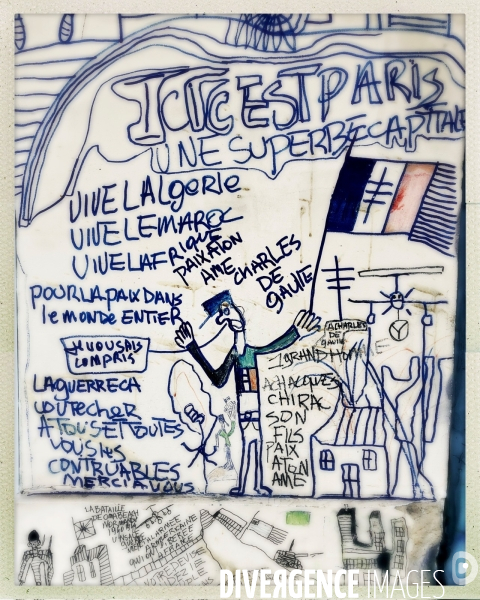 ICI C EST PARIS
UNE SUPERBE CAPITTALE
VIVE LALGERIE
VIVE LEMAROC
VIVE LAFRIQUE
PAIX ATON
AME CHARLES
DE
GAULE
POUR LA PAIX DANS
le MONDE ENTIER
JE VOUS AIS
COMPRIS
LA GUERRE CA
COUTECHER
A TOUS ET TOUTES
VOUS LES
CONTRUABLES
MERCI A VOUS
A CHARLES
DE
GAULLE
1 GRAND HOMME
A JACQUES
CHIRAC
SON
FILS
PAIX
ATON
AME
LA BATAILLE
DIVERGENCE IMAGES